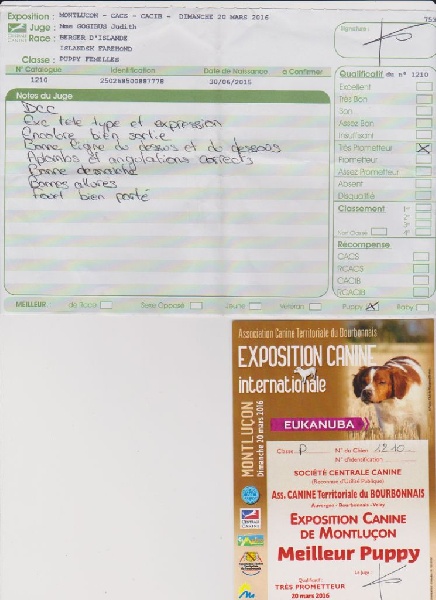 Exposition : MONTLUÇON - CACS - CACIB - DIMANCHE 20 MARS 2016
Juge : Mme GOGIBUS Judith
Race : BERGER D'ISLANDE
ISLANDSK FAREHOND
Classe : PUPPY FEMELLES
Signature :
N° Catalogue Identification Date de Naissance à Confirmer
1210 250268500887778 30/06/2015
Qualificatif du n° 1210
Excellent
Très Bon
Bon
Assez Bon
Insuffisant
Très Prometteur X
Prometteur
Assez Prometteur
Absent
Disqualifié
Classement
Non Classé
Récompense
CACS
RCACS
CACIB
RCACIB
Notes du Juge
Exc tête type et expression
Encolure bien sortie
Bonne ligne du dessus et du dessous
Aplombs et angulations corrects
Bonne démarche
Bonnes allures
Fouet bien porté
MEILLEUR de Race Sexe Opposé Jeune Vétéran Puppy X Baby
Association Canine Territoriale du Bourbonnais
EXPOSITION CANINE
internationale
MONTLUÇON
Dimanche 20 mars 2016
EUKANUBA
Classe P N° du Chien 1210
N° d'identification
SOCIÉTÉ CENTRALE CANINE
(Reconnue d'Utilité Publique)
Ass. CANINE Territoriale du BOURBONNAIS
Auvergne - Bourbonnais - Velay
EXPOSITION CANINE
DE MONTLUÇON
Meilleur Puppy
Le Juge :
Qualificatif :
TRÈS PROMETTEUR
20 mars 2016